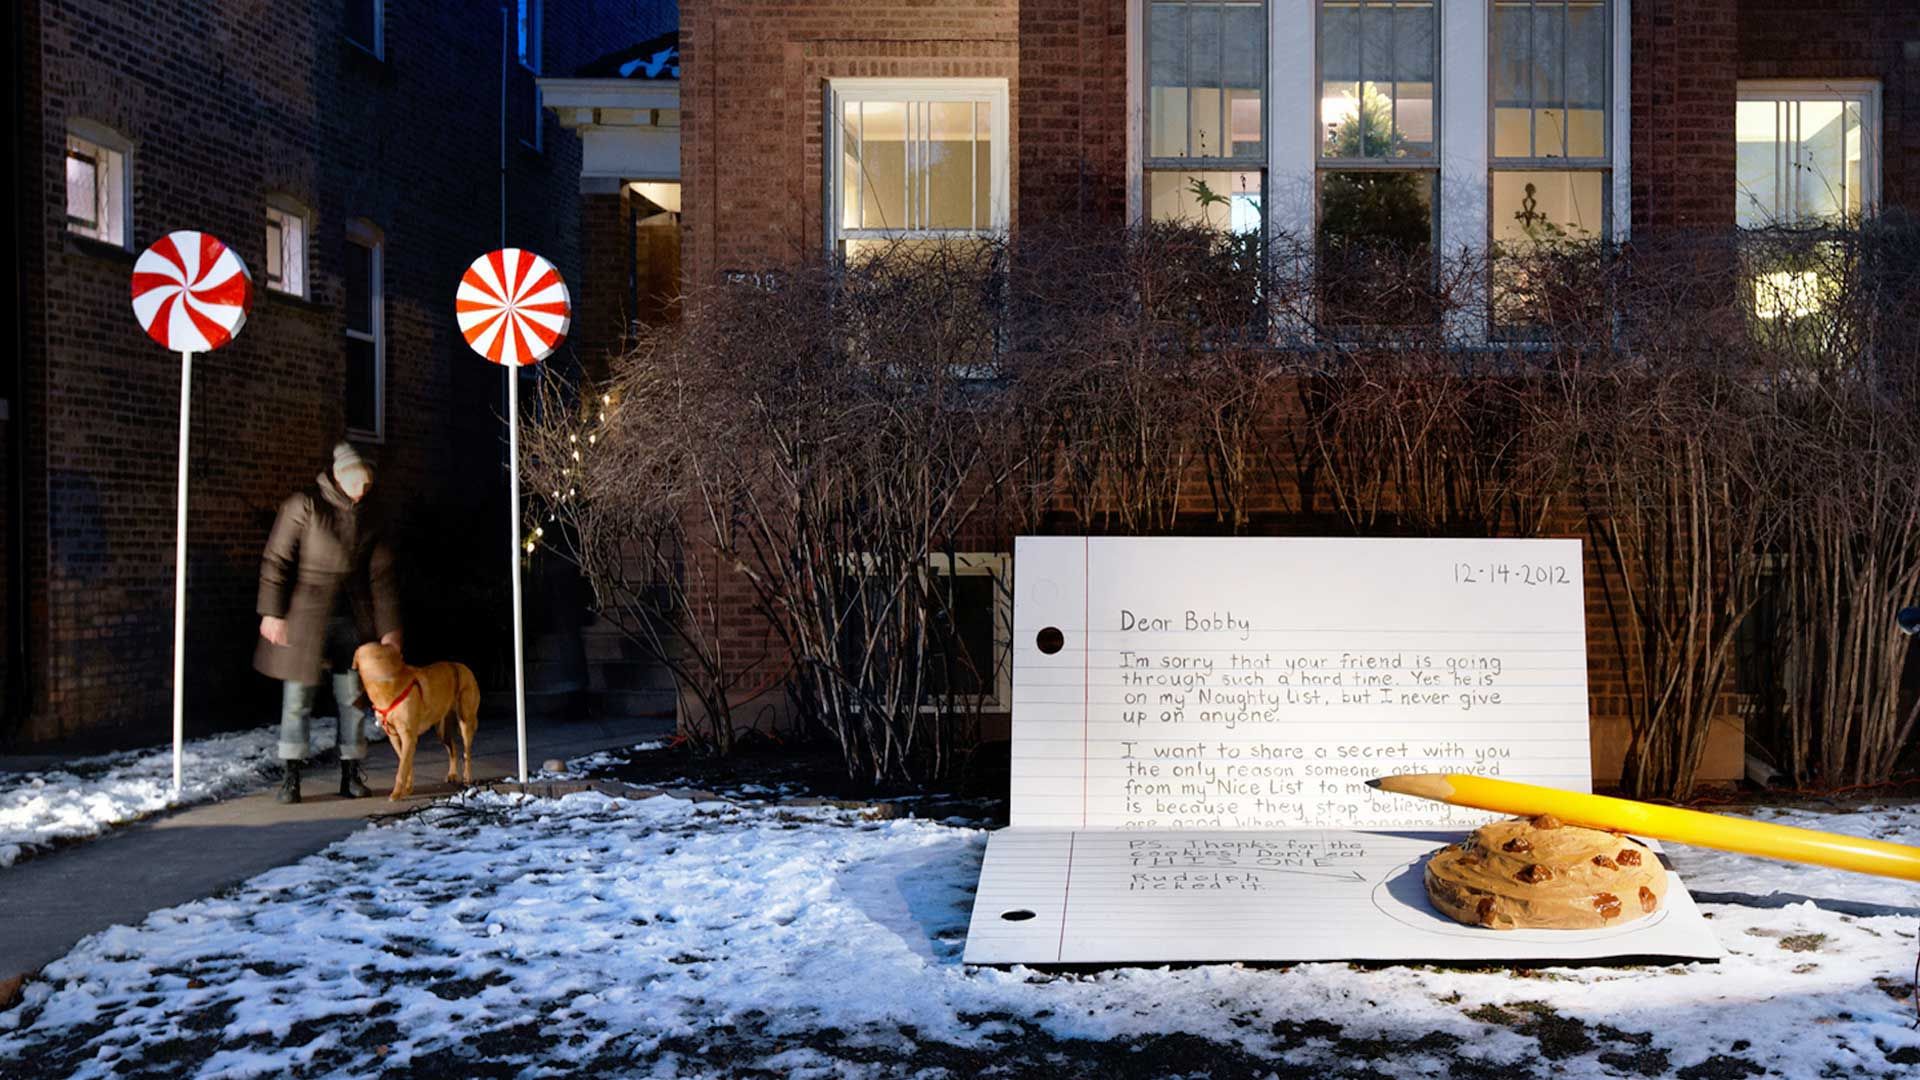 12-14-2012
Dear Bobby
I'm sorry that your friend is going
through such a hard time. Yes he is
on my Naughty List, but I never give
up on anyone.
I want to share a secret with you
the only reason someone gets moved
from my Nice List to my
is because they stop believing
are good. When this happens they
PS. Thanks for the
cookies! Don't eat
THIS ONE
Rudolph
licked it.